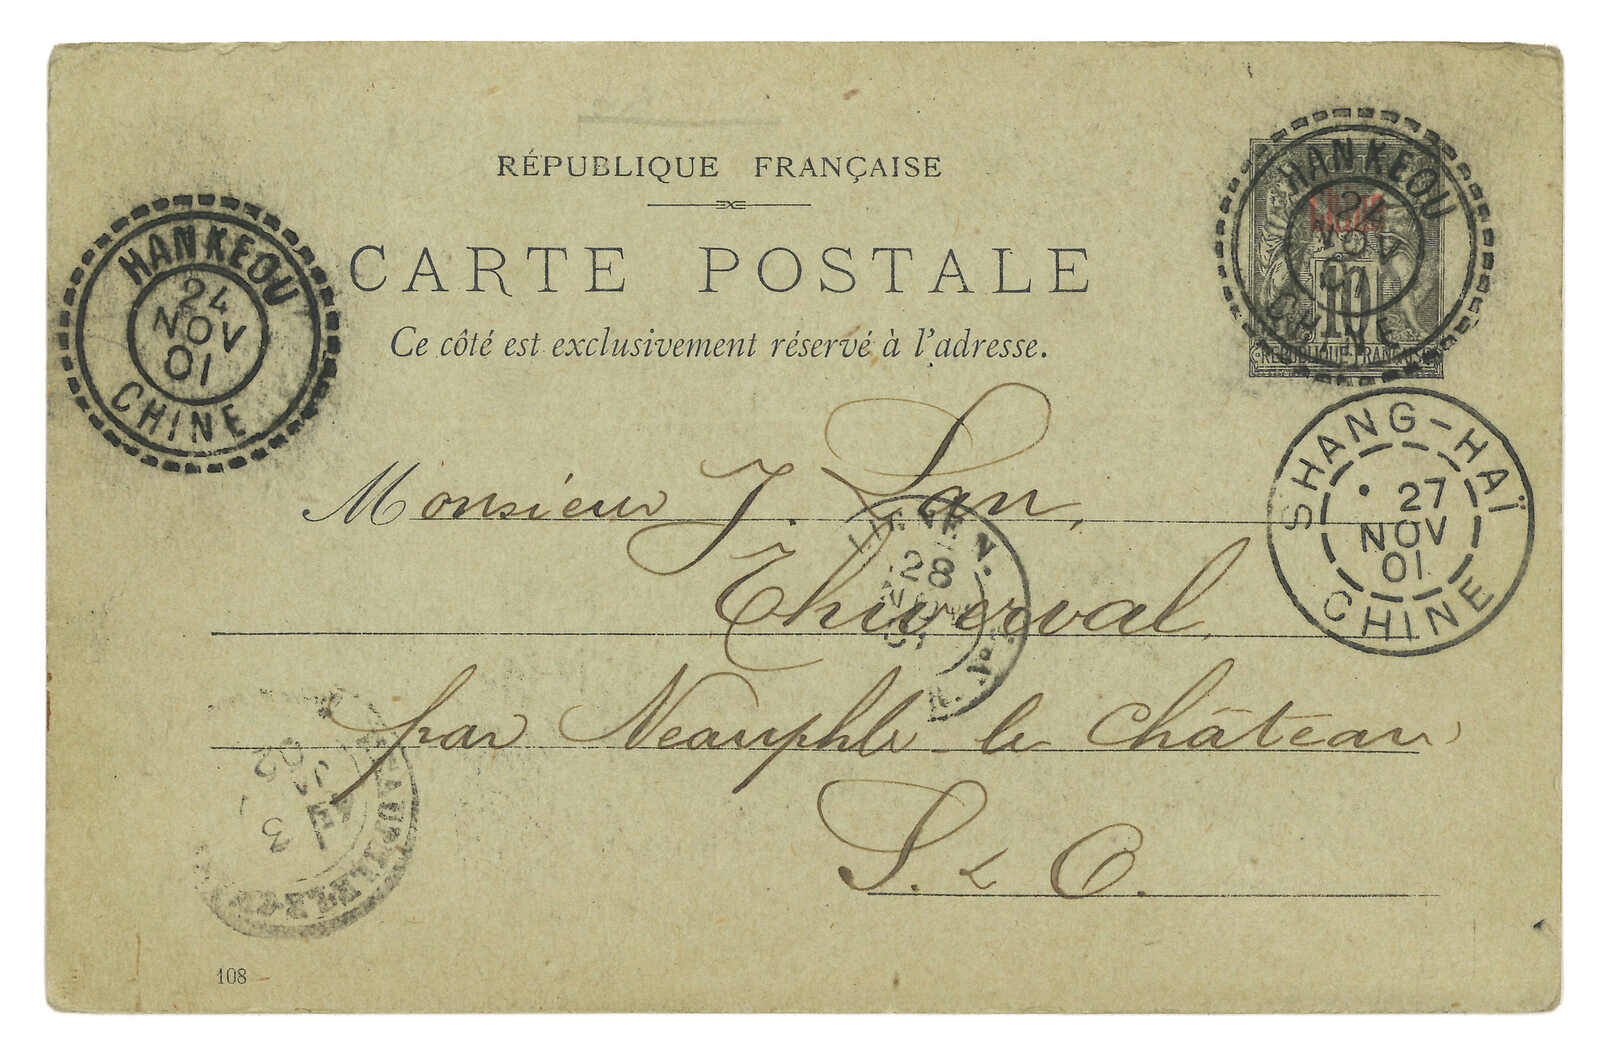 RÉPUBLIQUE FRANÇAISE
CARTE POSTALE
Ce côté est exclusivement réservé à l'adresse.
HANKEOU
24
NOV
01
CHINE
HANKEOU
24
NOV
01
CHINE
10
REPUBLIQUE FRANÇAISE
SHANG-HAÏ
27
NOV
01
CHINE
Monsieur J. Lan,
Thiverval,
par Neauphle-le Château,
S. & O.
28
01
3
02
108